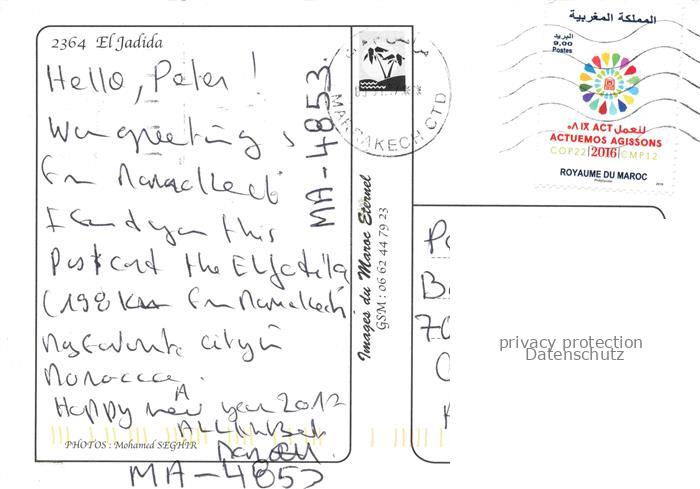 2364 El Jadida
Hello, Peter !
Warm greeting s
from Marrakech
I send you this
Postcard the El Jadida
(198 km from Marrakech
my favourite city in
Morocco.
Happy new year 2017
All the Best
MA-4853
PHOTOS : Mohamed SEGHIR
MA-4853.
Images du Maroc Eternel
GSM : 06 62 44 79 23
MARRAKECH CTD
المملكة المغربية
البريد
9,00
Postes
لنعمل ACT
ACTUEMOS AGISSONS
COP22 2016 CMP12
ROYAUME DU MAROC
privacy protection
Datenschutz